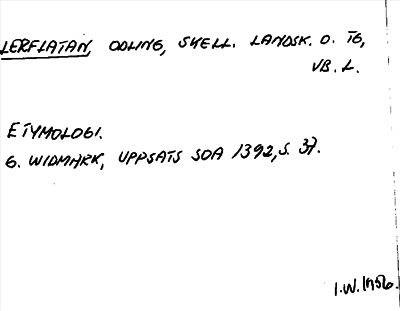 LERFLATAN, ODLING, SKELL. LANDSK. O. TG,
VB. L.
ETYMOLOGI.
G. WIDMARK, UPPSATS SOA 1392, S. 37.
I.W. 1956.